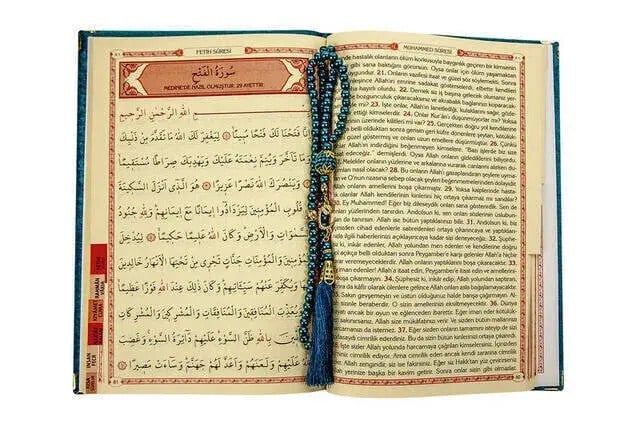 FETİH SÛRESİ
سُورَةُ الْفَتْحِ
MEDİNE'DE NAZİL OLMUŞTUR. 29 AYETTİR.
بِسْمِ اللهِ الرَّحْمٰنِ الرَّحِيمِ
اِنَّا فَتَحْنَا لَكَ فَتْحًا مُبِينًا لِيَغْفِرَ لَكَ اللهُ مَا تَقَدَّمَ مِنْ ذَنْبِكَ
وَمَا تَاَخَّرَ وَيُتِمَّ نِعْمَتَهُ عَلَيْكَ وَيَهْدِيَكَ صِرَاطًا مُسْتَقِيمًا
وَيَنْصُرَكَ اللهُ نَصْرًا عَزِيزًا هُوَ الَّذِى اَنْزَلَ السَّكِينَةَ
قُلُوبِ الْمُؤْمِنِينَ لِيَزْدَادُوا اِيمَانًا مَعَ اِيمَانِهِمْ وَلِلّٰهِ جُنُودُ
السَّمٰوَاتِ وَالْاَرْضِ وَكَانَ اللهُ عَلِيمًا حَكِيمًا لِيُدْخِلَ
الْمُؤْمِنِينَ وَالْمُؤْمِنَاتِ جَنَّاتٍ تَجْرِى مِنْ تَحْتِهَا الْاَنْهَارُ خَالِدِينَ
وَيُكَفِّرَ عَنْهُمْ سَيِّئَاتِهِمْ وَكَانَ ذٰلِكَ عِنْدَ اللهِ فَوْزًا عَظِيمًا
وَيُعَذِّبَ الْمُنَافِقِينَ وَالْمُنَافِقَاتِ وَالْمُشْرِكِينَ وَالْمُشْرِكَاتِ
بِاللهِ ظَنَّ السَّوْءِ عَلَيْهِمْ دَائِرَةُ السَّوْءِ وَغَضِبَ
عَلَيْهِمْ وَلَعَنَهُمْ وَاَعَدَّ لَهُمْ جَهَنَّمَ وَسَاءَتْ مَصِيرًا
81
MUHAMMED SÛRESİ
hastalık olanların ölüm korkusuyla baygınlık geçiren bir kimsenin
gibi sana baktığını görürsün. Oysa onlar için ölüm yaşamaktan
uygundur. 21. Onların vazifesi itaat ve güzel sözdür. İş ciddiye bindiği
Allah'ın emrine sadakat gösterselerdi, elbette kendileri
hayırlı olurdu. 22. Demek siz iş başına gelecek olursanız yer-
bozgunculuk çıkaracaksınız ve akrabalık bağlarınızı koparacak-
23. İşte onlar, Allah'ın lanetlediği, kulaklarını sağır, gözle-
24. Onlar Kur'an'ı düşünmüyorlar mı? Yoksa
üzerinde kilitleri mi var? 25. Gerçekten doğru yol kendilerine
belli olduktan sonra gerisin geri küfre dönenleri şeytan, kötülük-
güzel göstermiş ve onları uzun emellere düşürmüştür. 26. Çünkü
Allah'ın indirdiğini beğenmeyen kimselere, "Bazı işlerde biz size
edeceğiz." demişlerdi. Oysa Allah onların gizlediklerini biliyordu.
Melekler onların yüzlerine ve arkalarına vurarak canlarını aldığında
28. Bu onların Allah'ı gazaplandıran şeylere uyma-
ve O'nun rızasına sebep olacak şeyleri beğenmemelerinden dolayıdır.
Allah onların amellerini boşa çıkarmıştır. 29. Yoksa kalplerinde hasta-
olanlar Allah'ın kendilerinin kinlerini hiç ortaya çıkarmaz mı sandılar?
Ey Muhammed! Eğer biz dileseydik onları sana gösterirdik. Sen de
yüzlerinden tanırdın. Andolsun ki, sen onları sözlerinin üslubun-
tanırsın. Allah ise bütün yaptıklarınızı bilir. 31. Andolsun ki, biz
cihad edenlerle sabredenleri ortaya çıkarıncaya ve yaptıkları-
ilgili haberlerinizi açıklayıncaya kadar sizi deneyeceğiz. 32. Şüphe-
ki, inkâr edenler, Allah yolundan men edenler ve kendilerine doğru
açıkça belli olduktan sonra Peygamber'e karşı gelenler Allah'a hiçbir
veremeyeceklerdir. Allah onların yaptıklarını boşa çıkaracaktır. 33.
edenler! Allah'a itaat edin, Peygamber'e itaat edin ve amellerini
boşa çıkarmayın. 34. Şüphesiz ki, inkâr edip, Allah yolundan saptıran
da kâfir olarak ölenlere gelince Allah onları asla bağışlamayacaktır.
Sakın gevşemeyin ve üstün olduğunuz halde barışa çağırmayın. Al-
sizinle beraberdir. O sizin amellerinizi eksiltmeyecektir. 36. Dünya
ancak bir oyun ve eğlenceden ibarettir. Eğer iman eder kötülük-
sakınırsanız. Allah size mükâfatınızı verir. Ve sizden bütün mallarınızı
da istemez. 37. Eğer sizden onların tamamını isteyip de sizi
zorlasaydı cimrilik ederdiniz. Bu da sizin bütün kinlerinizi ortaya çıkarır-
38. İşte sizler Allah yolunda harcamaya çağrılan kimselersiniz. İçinizden
cimrilik ediyor. Ama cimrilik eden ancak kendi zararına cimrilik
Allah zengindir, siz ise fakirsiniz. Eğer siz Hakk'tan yüz çevirecek
yerinize başka bir kavim getirir. Sonra onlar sizin gibi olmazlar.
80